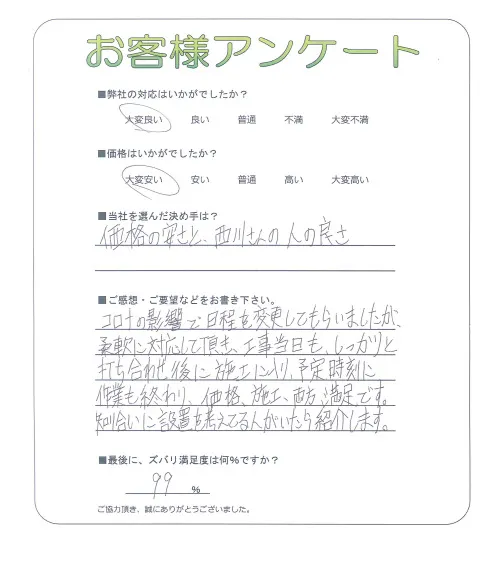 お客様アンケート
■弊社の対応はいかがでしたか？
大変良い 良い 普通 不満 大変不満
■価格はいかがでしたか？
大変安い 安い 普通 高い 大変高い
■当社を選んだ決め手は？
価格の安さと、西川さんの人の良さ
■ご感想・ご要望などをお書き下さい。
コロナの影響で日程を変更してもらいましたが、
柔軟に対応して頂き、工事当日も、しっかりと
打ち合わせ後に施工に入り、予定時刻に
作業も終わり、価格、施工、両方、満足です。
知り合いに設置を考えてる人がいたら紹介します。
■最後に、ズバリ満足度は何%ですか？
99 %
ご協力頂き、誠にありがとうございました。